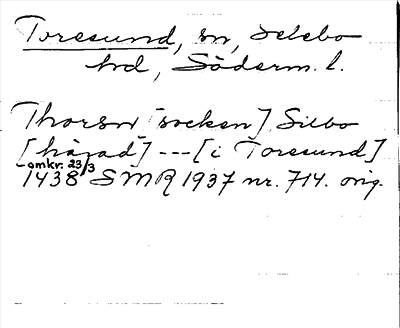 Toresund, sn, Selebo
hd, Söderm. l.
Thorsn [socken] Silbo
[härad] --- [i Toresund]
omkr. 23/3
1438 SMR 1937 nr. 714. orig.